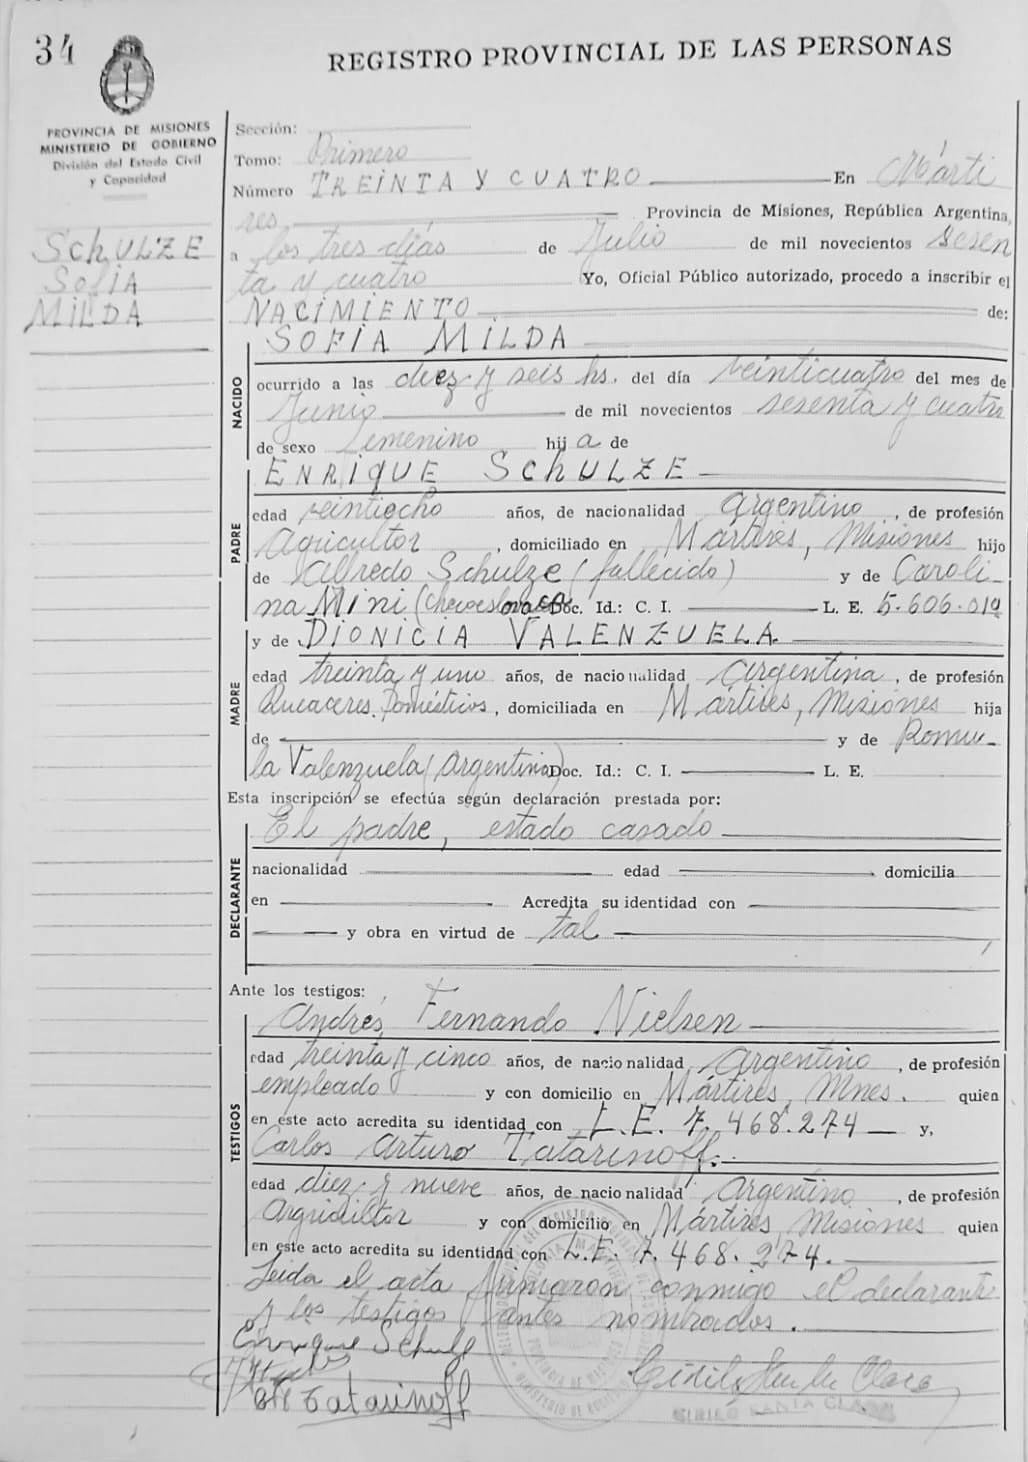 34
REGISTRO PROVINCIAL DE LAS PERSONAS
PROVINCIA DE MISIONES
MINISTERIO DE GOBIERNO
División del Estado Civil
y Capacidad
SchULZE
SOFIA
MILDA
Sección:
Tomo: Primero
Número TREINTA Y CUATRO En Márti
res Provincia de Misiones, República Argentina,
a los tres días de Julio de mil novecientos sesen
ta y cuatro Yo, Oficial Público autorizado, procedo a inscribir el
NACIMIENTO de:
SOFIA MILDA
NACIDO
ocurrido a las diez y seis hs. del día veinticuatro del mes de
Junio de mil novecientos sesenta y cuatro
de sexo femenino hij a de
ENRIQUE SchULZE
PADRE
edad veintiocho años, de nacionalidad Argentino, de profesión
Agricultor, domiciliado en Mártires, Misiones hijo
de Alfredo Schulze (fallecido) y de Caroli-
na Mini (Checoeslovaca) Doc. Id.: C. I. L. E. 5.606.019
y de DIONICIA VALENZUELA
MADRE
edad treinta y uno años, de nacionalidad Argentina, de profesión
Queaceres Domésticos, domiciliada en Mártires, Misiones hija
de y de Romu-
la Valenzuela (Argentina) Doc. Id.: C. I. L. E.
Esta inscripción se efectúa según declaración prestada por:
El padre, estado casado
DECLARANTE
nacionalidad edad domicilia
en Acredita su identidad con
y obra en virtud de tal
Ante los testigos:
Andres Fernando Nielsen
TESTIGOS
edad treinta y cinco años, de nacionalidad Argentino, de profesión
empleado y con domicilio en Mártires, Mnes. quien
en este acto acredita su identidad con L.E. 7.468.274 y,
Carlos Arturo Tatarinoff.
edad diez y nueve años, de nacionalidad Argentino, de profesión
y con domicilio en Mártires, Misiones quien
en este acto acredita su identidad con L.E. 7.468.274.
Leida el acta firmaron conmigo el declarante
y los testigos antes nombrados.
Enrique Schulze
Tatarinoff
SANTA CLARA